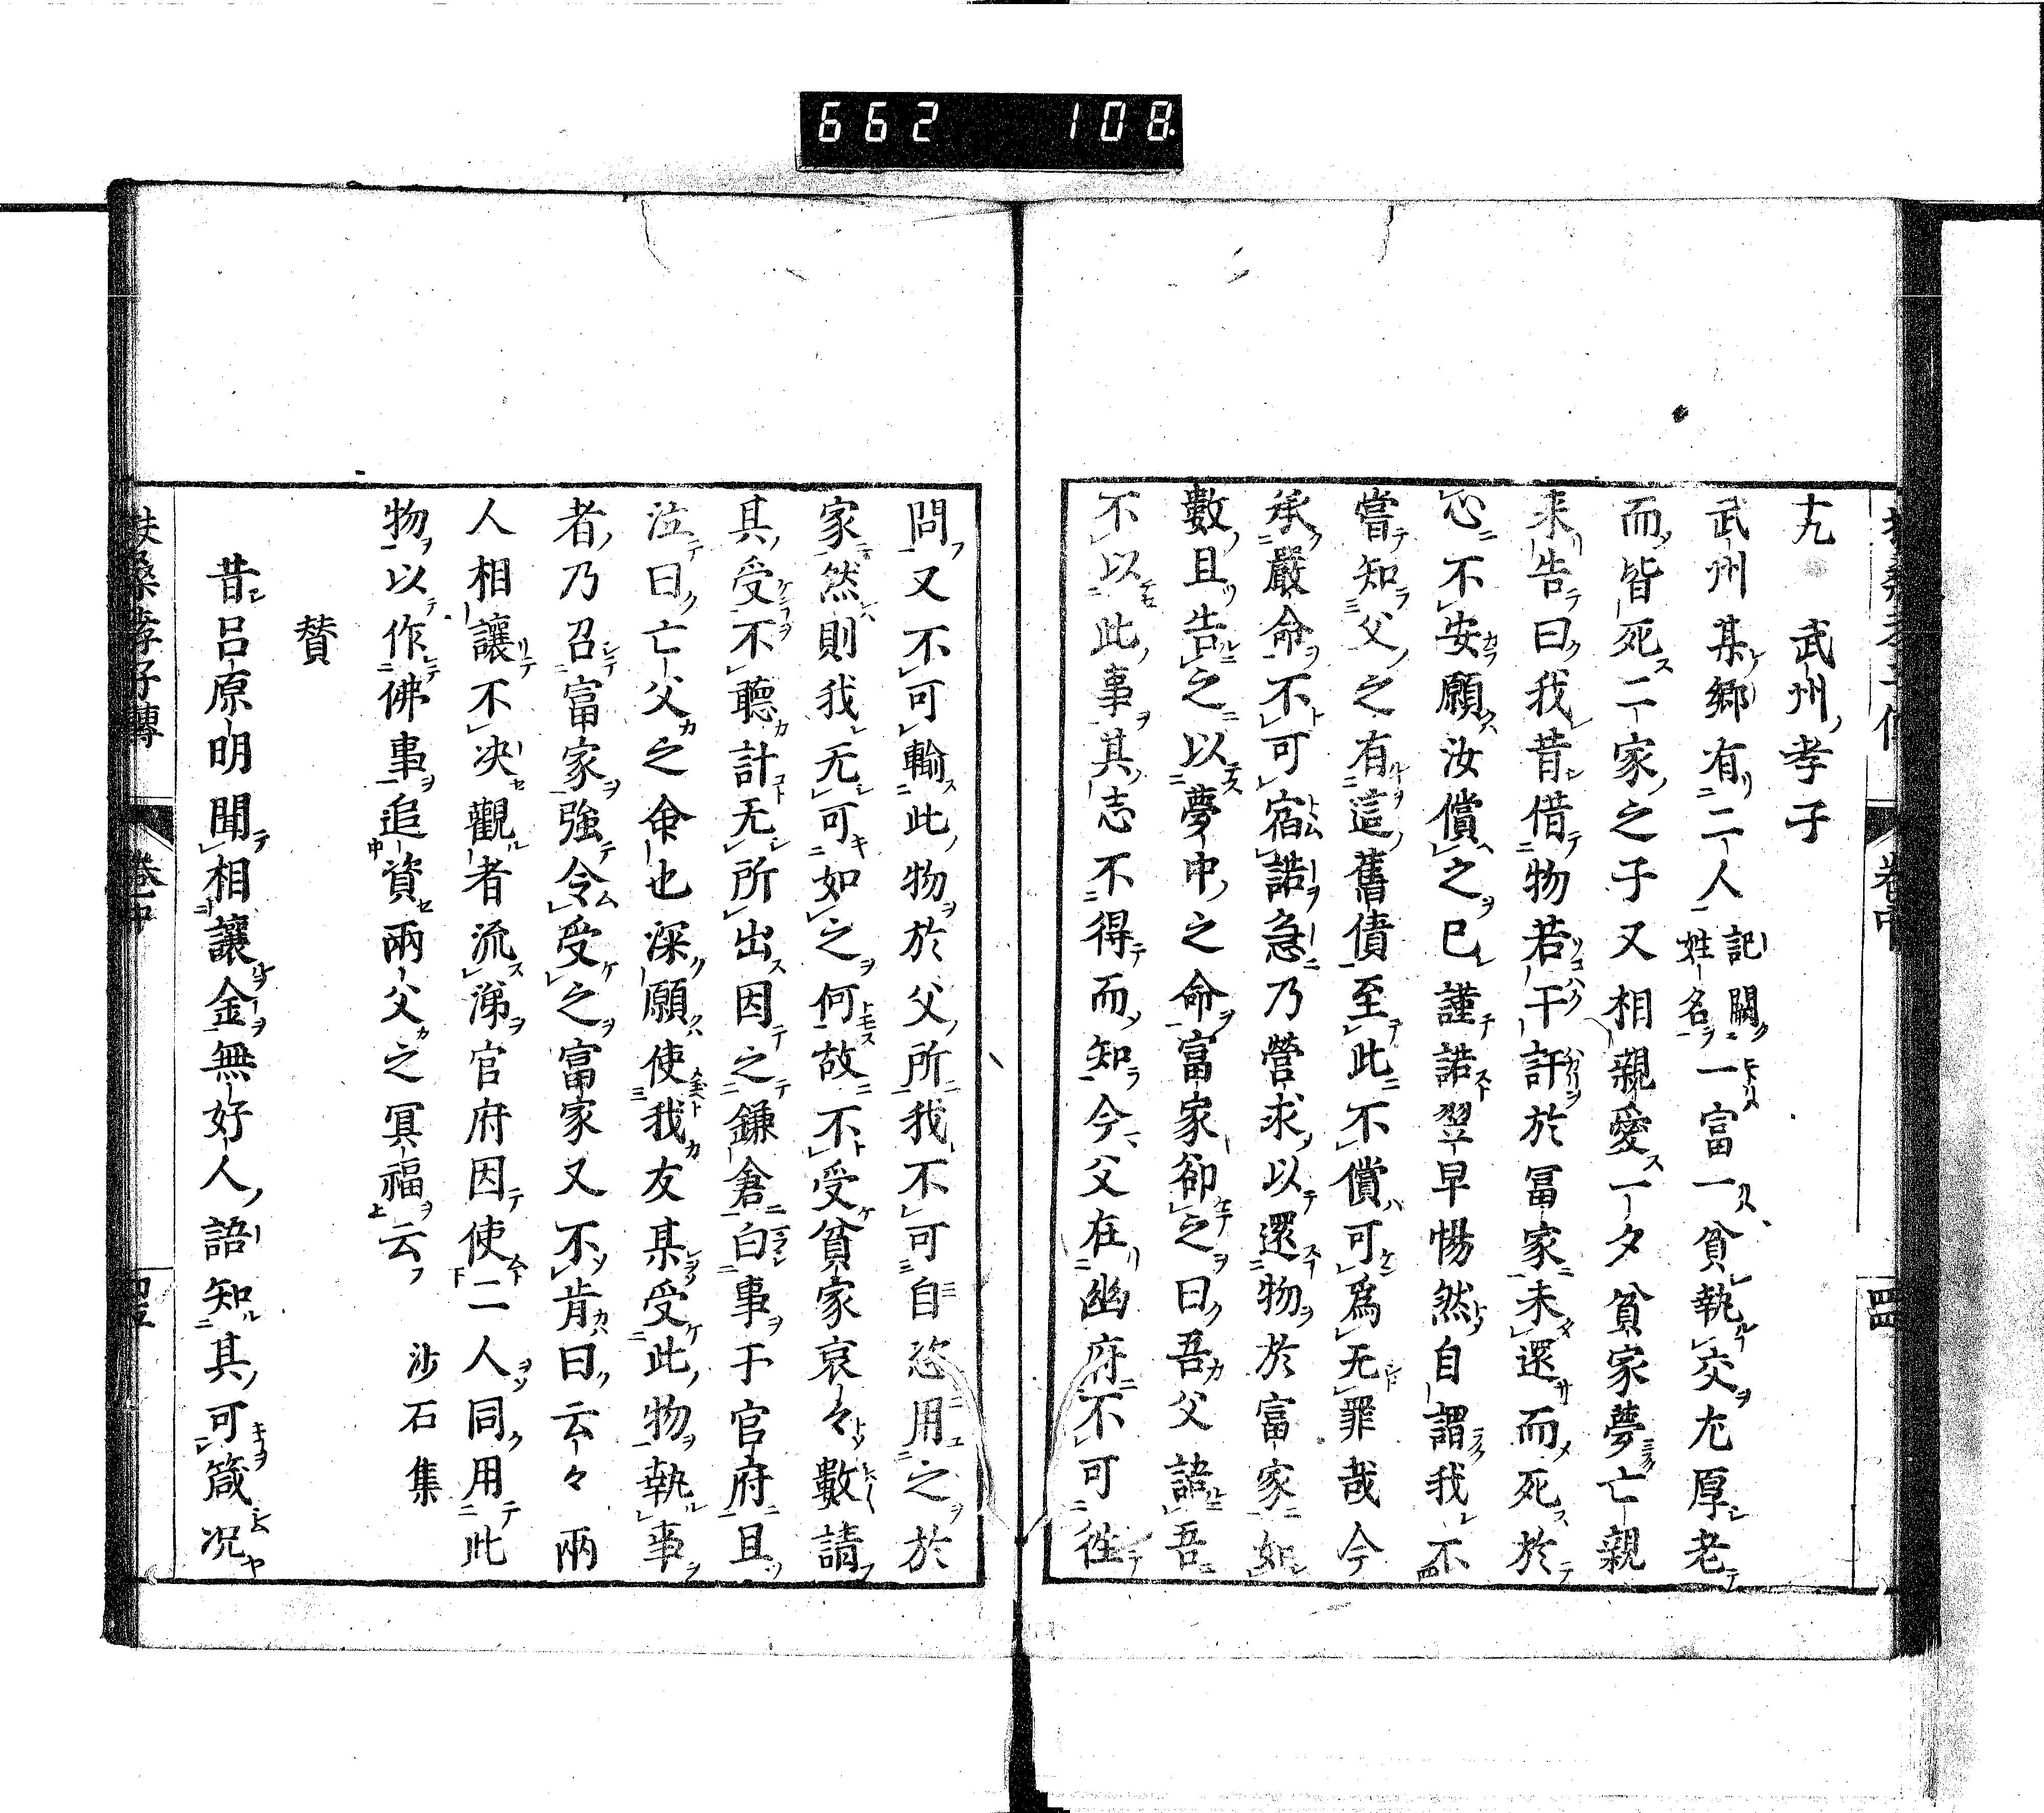 662 108
十九 武州孝子
武州某郷有二人記闕姓名一富一貧執交尤厚老
而皆死二家之子又相親愛一夕貧家夢亡親
来告曰我昔借物若干許於冨家未還而死於
心不安願汝償之已謹諾翌早惕然自謂我不
嘗知父之有這舊債至此不償可爲无罪哉今
承嚴命不可宿諾急乃營求以還物於富家如
數且告之以夢中之命富家卻之曰吾父諱吾
不以此事其志不得而知今父在幽府不可往
問又不可輸此物於父所我不可自恣用之於
家然則我无可如之何故不受貧家哀々數請
其受不聽計无所出因之鎌倉白事于官府且
泣曰亡父之命也深願使我友某受此物執事
者乃召富家強令受之富家又不肯曰云々兩
人相讓不决觀者流涕官府因使二人同用此
物以作佛事追資兩父之冥福云 沙石集
賛
昔呂原明聞相讓金無好人語知其可箴况
扶桑孝子傳 卷中